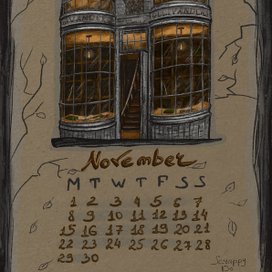 November
M T W T F S S
1 2 3 4 5 6 7
8 9 10 11 12 13 14
15 16 17 18 19 20 21
22 23 24 25 26 27 28
29 30